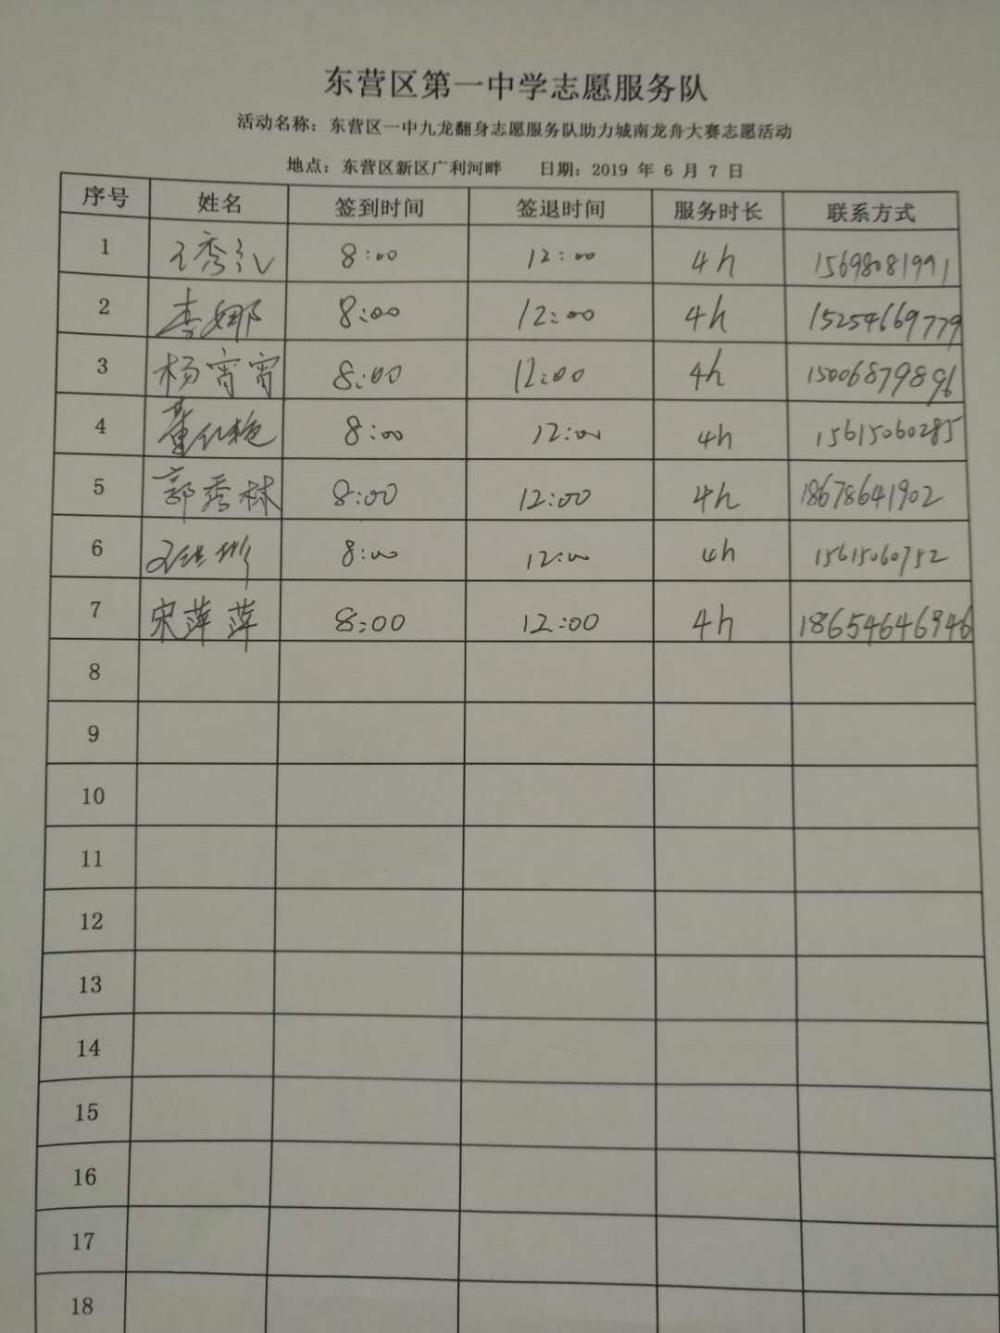 东营区第一中学志愿服务队
活动名称：东营区一中九龙翻身志愿服务队助力城南龙舟大赛志愿活动
地点：东营区新区广利河畔 日期：2019 年 6 月 7 日
序号 姓名 签到时间 签退时间 服务时长 联系方式
1 8:00 12:00 4h 15698081991
2 李娜 8:00 12:00 4h 15254669779
3 杨宵宵 8:00 12:00 4h 15006879896
4 8:00 12:00 4h 15615060285
5 郭秀林 8:00 12:00 4h 18678641902
6 8:00 12:00 4h 15615060752
7 宋萍萍 8:00 12:00 4h 18654646946
8
9
10
11
12
13
14
15
16
17
18